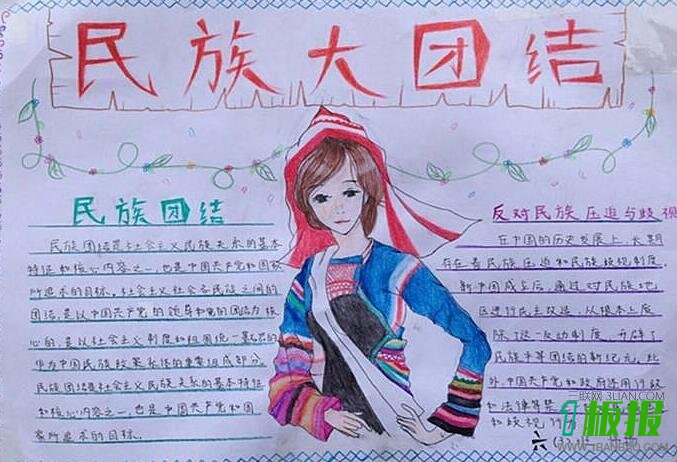 民族大团结
民族团结
民族团结是社会主义民族关系的基本
特征和核心内容之一,也是中国共产党和国家
所追求的目标。社会主义社会各民族之间的
团结,是以中国共产党的领导和党的团结为核
心的,是以社会主义制度和祖国统一
华为中国民族政策总体的重要组成部分,
民族团结是社会主义民族关系的基本特征
和核心内容之一,也是中国共产党和国
家所追求的目标.
反对民族压迫与歧视
在中国的历史发展上,长期
存在着民族压迫和民族歧视制度.
新中国成立后,通过对民族地
区进行民主改造,从根本上废
除了这一反动制度,开辟了
民族平等团结的新纪元.此
外,中国共产党和政府还用行政
和法律等
和歧视
六(3)班
三联网 3LIAN.COM
板报
WWW.1BANBAO.COM